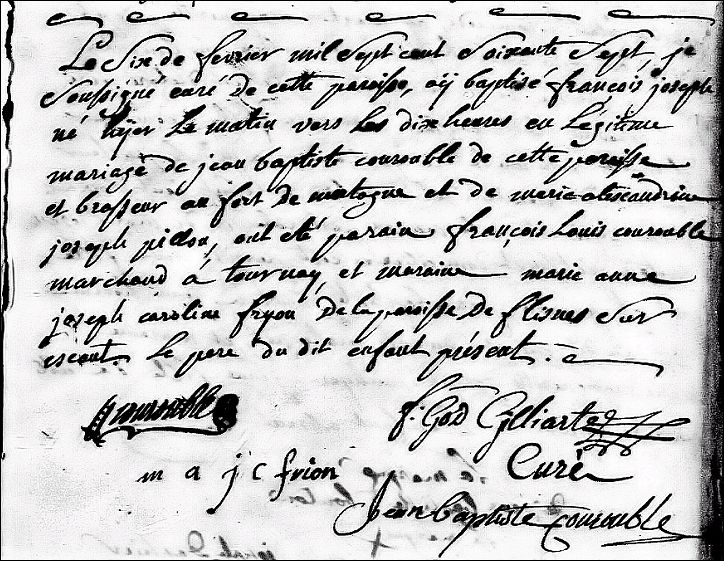 Le Six de fevrier mil Sept cent Soixante Sept, je
Soussigné curé de cette paroisse, aÿ baptisé françois joseph
né hÿer le matin vers les dix heures en Legitime
mariage de jean baptiste couroble de cette paroisse
et brasseur au fort de mortagne et de marie alexandrine
joseph pillon, ont eté parain françois Louis couroble
marchand a tournay, et maraine marie anne
joseph caroline fryon, De la paroisse De flisnes Sur
escaut. Le pere du dit enfant présent.
couroble
f. God Gilliart
m a j c frion
Curé
Jean baptiste Couroble